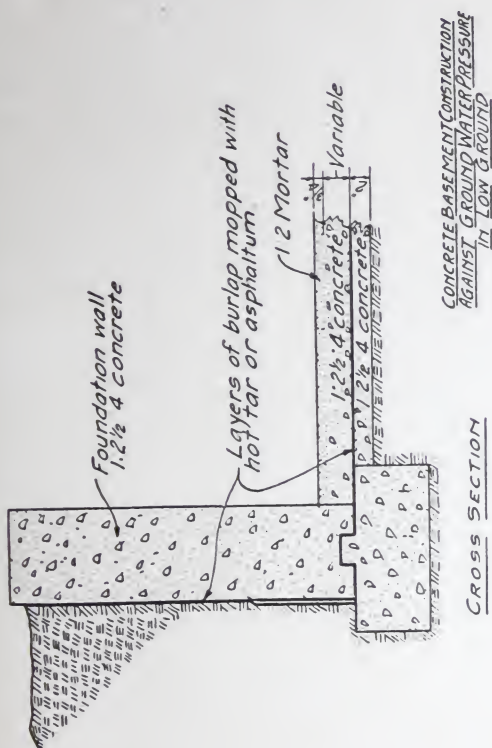 Foundation wall
1:2½ 4 concrete
Layers of burlap mopped with
hot tar or asphaltum
1:2 Mortar
Variable
1:2½:4 concrete
1:2½ 4 concrete
2"
CROSS SECTION
CONCRETE BASEMENT CONSTRUCTION
AGAINST GROUND WATER PRESSURE
IN LOW GROUND